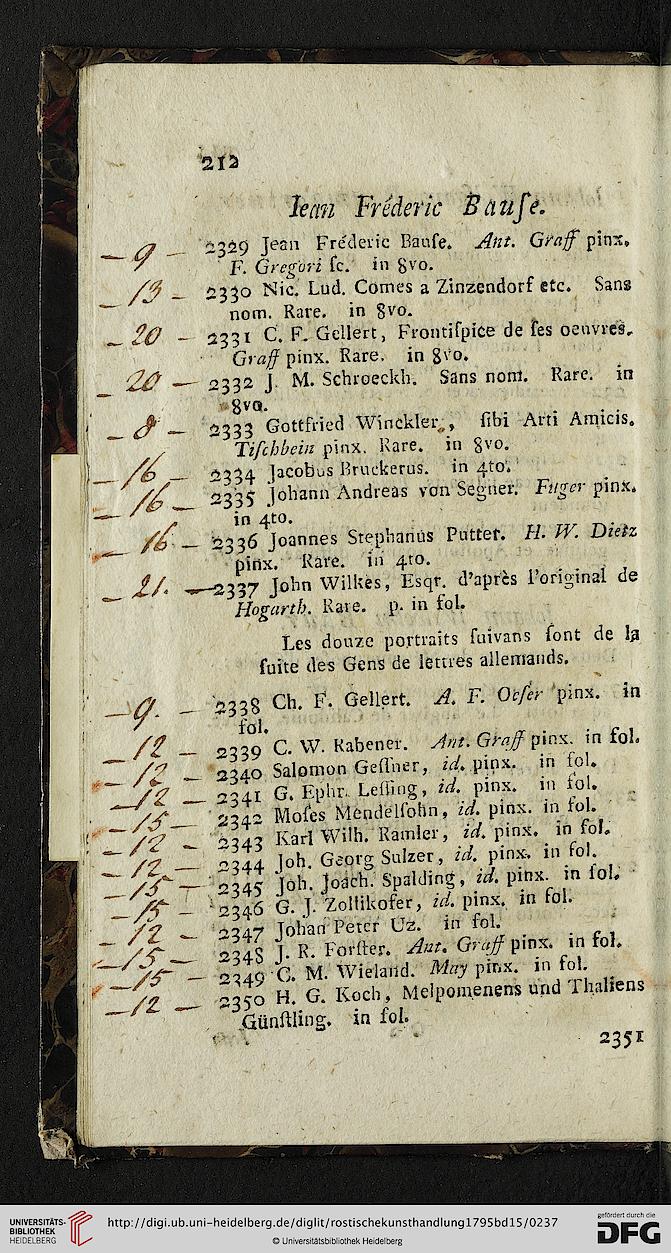 212
Iean Fréderic Bauſe.
— 9 — 2329 Jean Fréderic Bauſe. Ant. Graff pinx.
F. Gregori ſc. in 8vo.
— 13 — 2330 Nic. Lud. Comes a Zinzendorf etc. Sans
nom. Rare. in 8vo.
— 20 — 2331 C. F. Gellert, Frontiſpice de ſes oeuvres.
Graff pinx. Rare. in 8vo.
— 20 — 2332 J. M. Schroeckh. Sans nom. Rare. in
8vo.
— 8 — 2333 Gottfried Winckler, ſibi Arti Amicis.
Tiſchbein pinx. Rare. in 8vo.
— 16 — 2334 Jacobus Bruckerus. in 4to.
— 16 — 2335 Johann Andreas von Segner. Fuger pinx.
in 4to.
— 16 — 2336 Joannes Stephanus Putter. H. W. Dietz
pinx. Rare. in 4to.
— 21. — 2337 John Wilkes, Esqr. d'après l'original de
Hogarth. Rare. p. in fol.
Les douze portraits ſuivans ſont de la
ſuite des Gens de lettres allemands.
— 9. — 2338 Ch. F. Gellert. A. F. Oeſer pinx. in
fol.
— 12 — 2339 C. W. Rabener. Ant. Graff pinx. in fol.
— 12 — 2340 Salomon Geſſner, id. pinx. in fol.
— 12 — 2341 G. Ephr. Leſſing, id. pinx. in fol.
— 15 — 2342 Moſes Mendelſohn, id. pinx. in fol.
— 12 — 2343 Karl Wilh. Ramler, id. pinx. in fol.
— 12 — 2344 Joh. Georg Sulzer, id. pinx. in fol.
— 15 — 2345 Joh. Joach. Spalding, id. pinx. in fol.
— 15 — 2346 G. J. Zollikofer, id. pinx. in fol.
— 12 — 2347 Johan Peter Uz. in fol.
— 15 — 2348 J. R. Forſter. Ant. Graff pinx. in fol.
— 15 — 2349 C. M. Wieland. May pinx. in fol.
— 12 — 2350 H. G. Koch, Melpomenens und Thaliens
Günſtling. in fol.
2351
UNIVERSITÄTS-
BIBLIOTHEK
HEIDELBERG
http://digi.ub.uni-heidelberg.de/diglit/rostischekunsthandlung1795bd15/0237
© Universitätsbibliothek Heidelberg
gefördert durch die
DFG